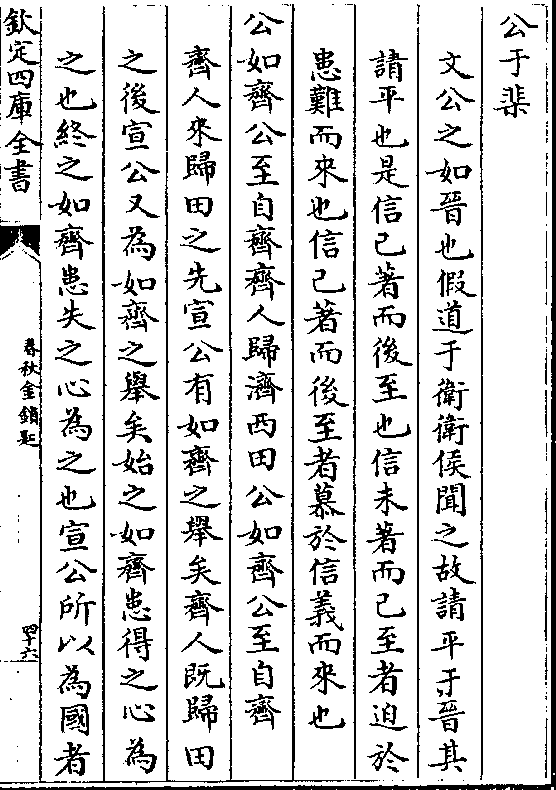 公于棐
文公之如晉也假道于衛衛侯聞之故請平于晉其
請平也是信已著而後至也信未著而已至者迫於
患難而來也信已著而後至者慕於信義而來也
公如齊公至自齊齊人歸濟西田公如齊公至自齊
齊人來歸田之先宣公有如齊之舉矣齊人既歸田
之後宣公又為如齊之舉矣始之如齊患得之心為
之也終之如齊患失之心為之也宣公所以為國者
欽定四庫全書
春秋金鎖匙
四十六